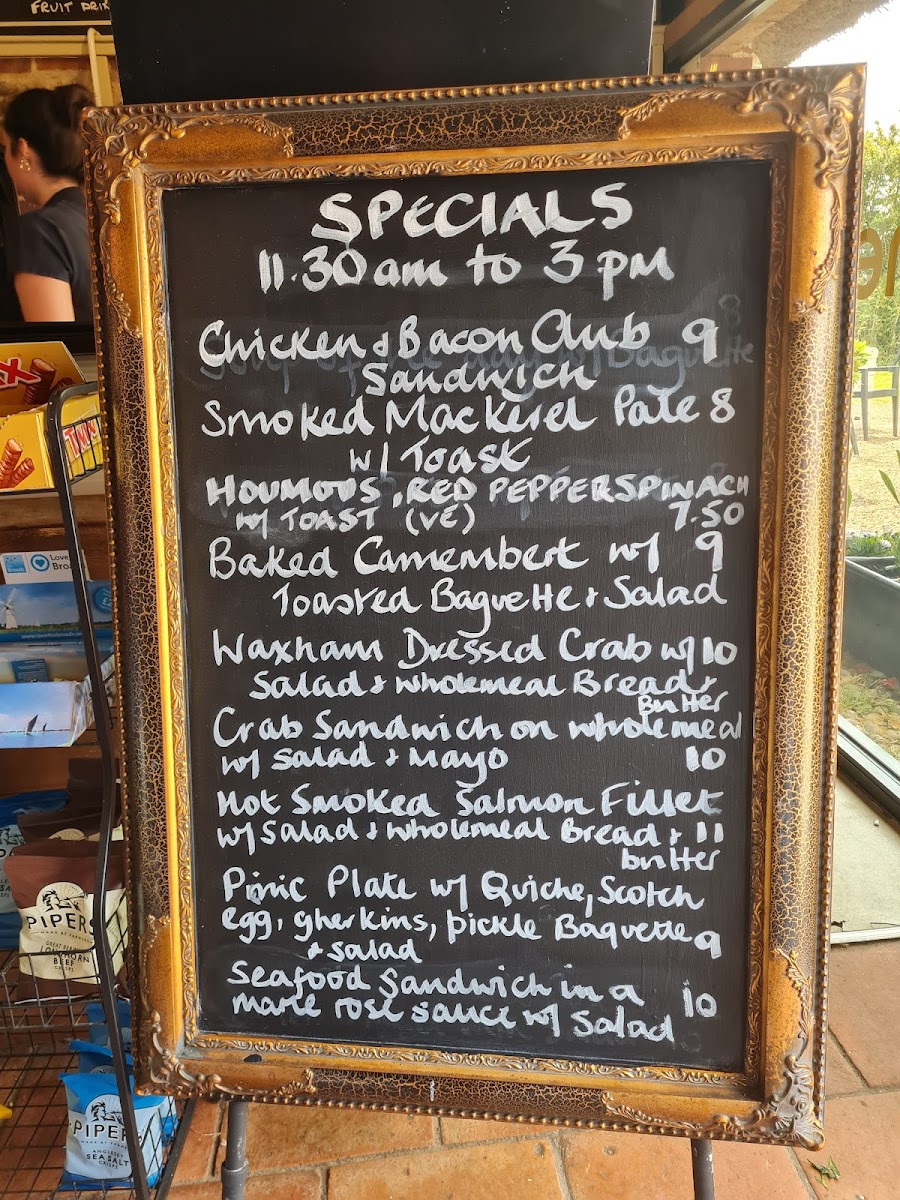 FRUIT DRIN
SPECIALS
11.30am to 3pm
Chicken & Bacon Club 9
Sandwich
Smoked Mackerel Pate 8
w/ Toast
HOUMOUS, RED PEPPER SPINACH
w/ TOAST (VE) 7.50
Baked Camembert w/ 9
Toasted Baguette & Salad
Waxham Dressed Crab w/ 10
Salad & wholemeal Bread &
Butter
Crab Sandwich on wholemeal
w/ salad & Mayo 10
Hot Smoked Salmon Fillet
w/ salad & wholemeal Bread & 11
butter
Picnic Plate w/ Quiche, Scotch
egg, gherkins, pickle Baguette 9
& salad
Seafood Sandwich in a
marie rose sauce w/ salad 10
TWIX
Love the
Broa
PIPERS
GREAT BERWICK
LONGHORN
BEEF
CRISPS
PIPERS
ANGLESEY
SEA SALT
CRISPS